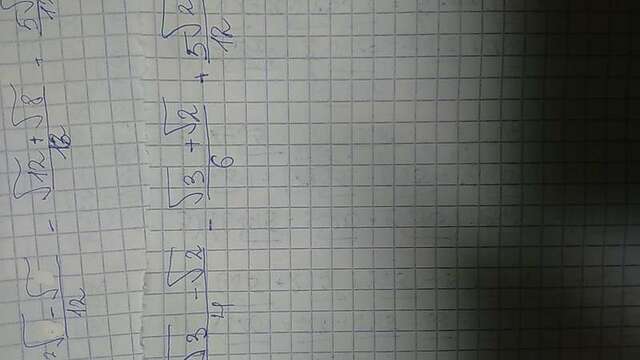 √ - √ / 12 - √12 + √8 / 12 + 5√
√3 - √2 / 4 - √3 + √2 / 6 + 5√2 / 12